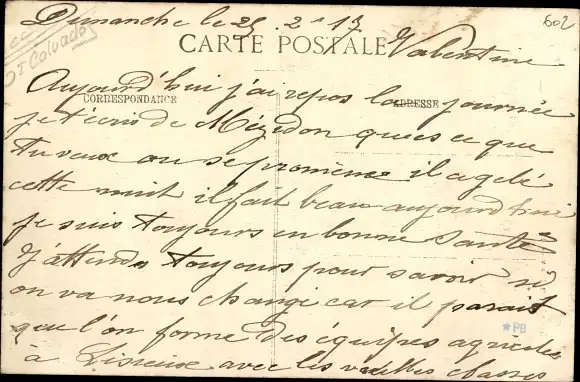 Dimanche le 25. 2 - 17
602
Dt Calvados
CARTE POSTALE
Valentine
Aujourd'hui j'ai repos la journée
CORRESPONDANCE
ADRESSE
je t'écris de Mézidon qu'es ce que
tu veux on se promène il a gelé
cette nuit il fait beau aujourd'hui
je suis toujours en bonne Santé
J'attends toujours pour savoir si
on va nous changé car il parait
que l'on forme des équipes agricoles
à Lisieux avec les vieilles classes
*PB